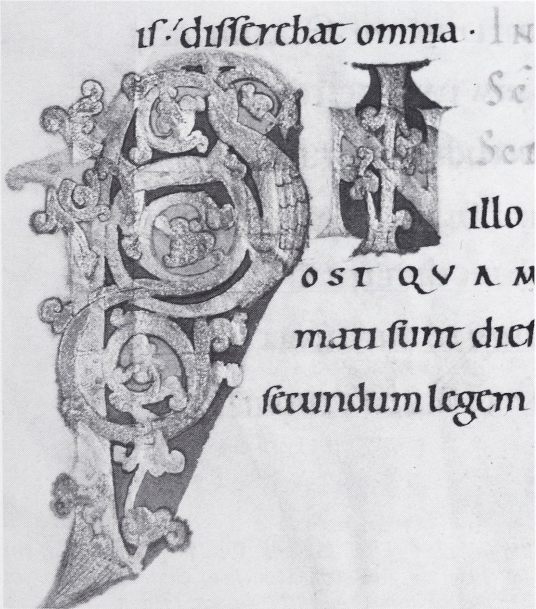 is: disserebat omnia.
IN
illo
POST QUAM
mati sunt dies
secundum legem